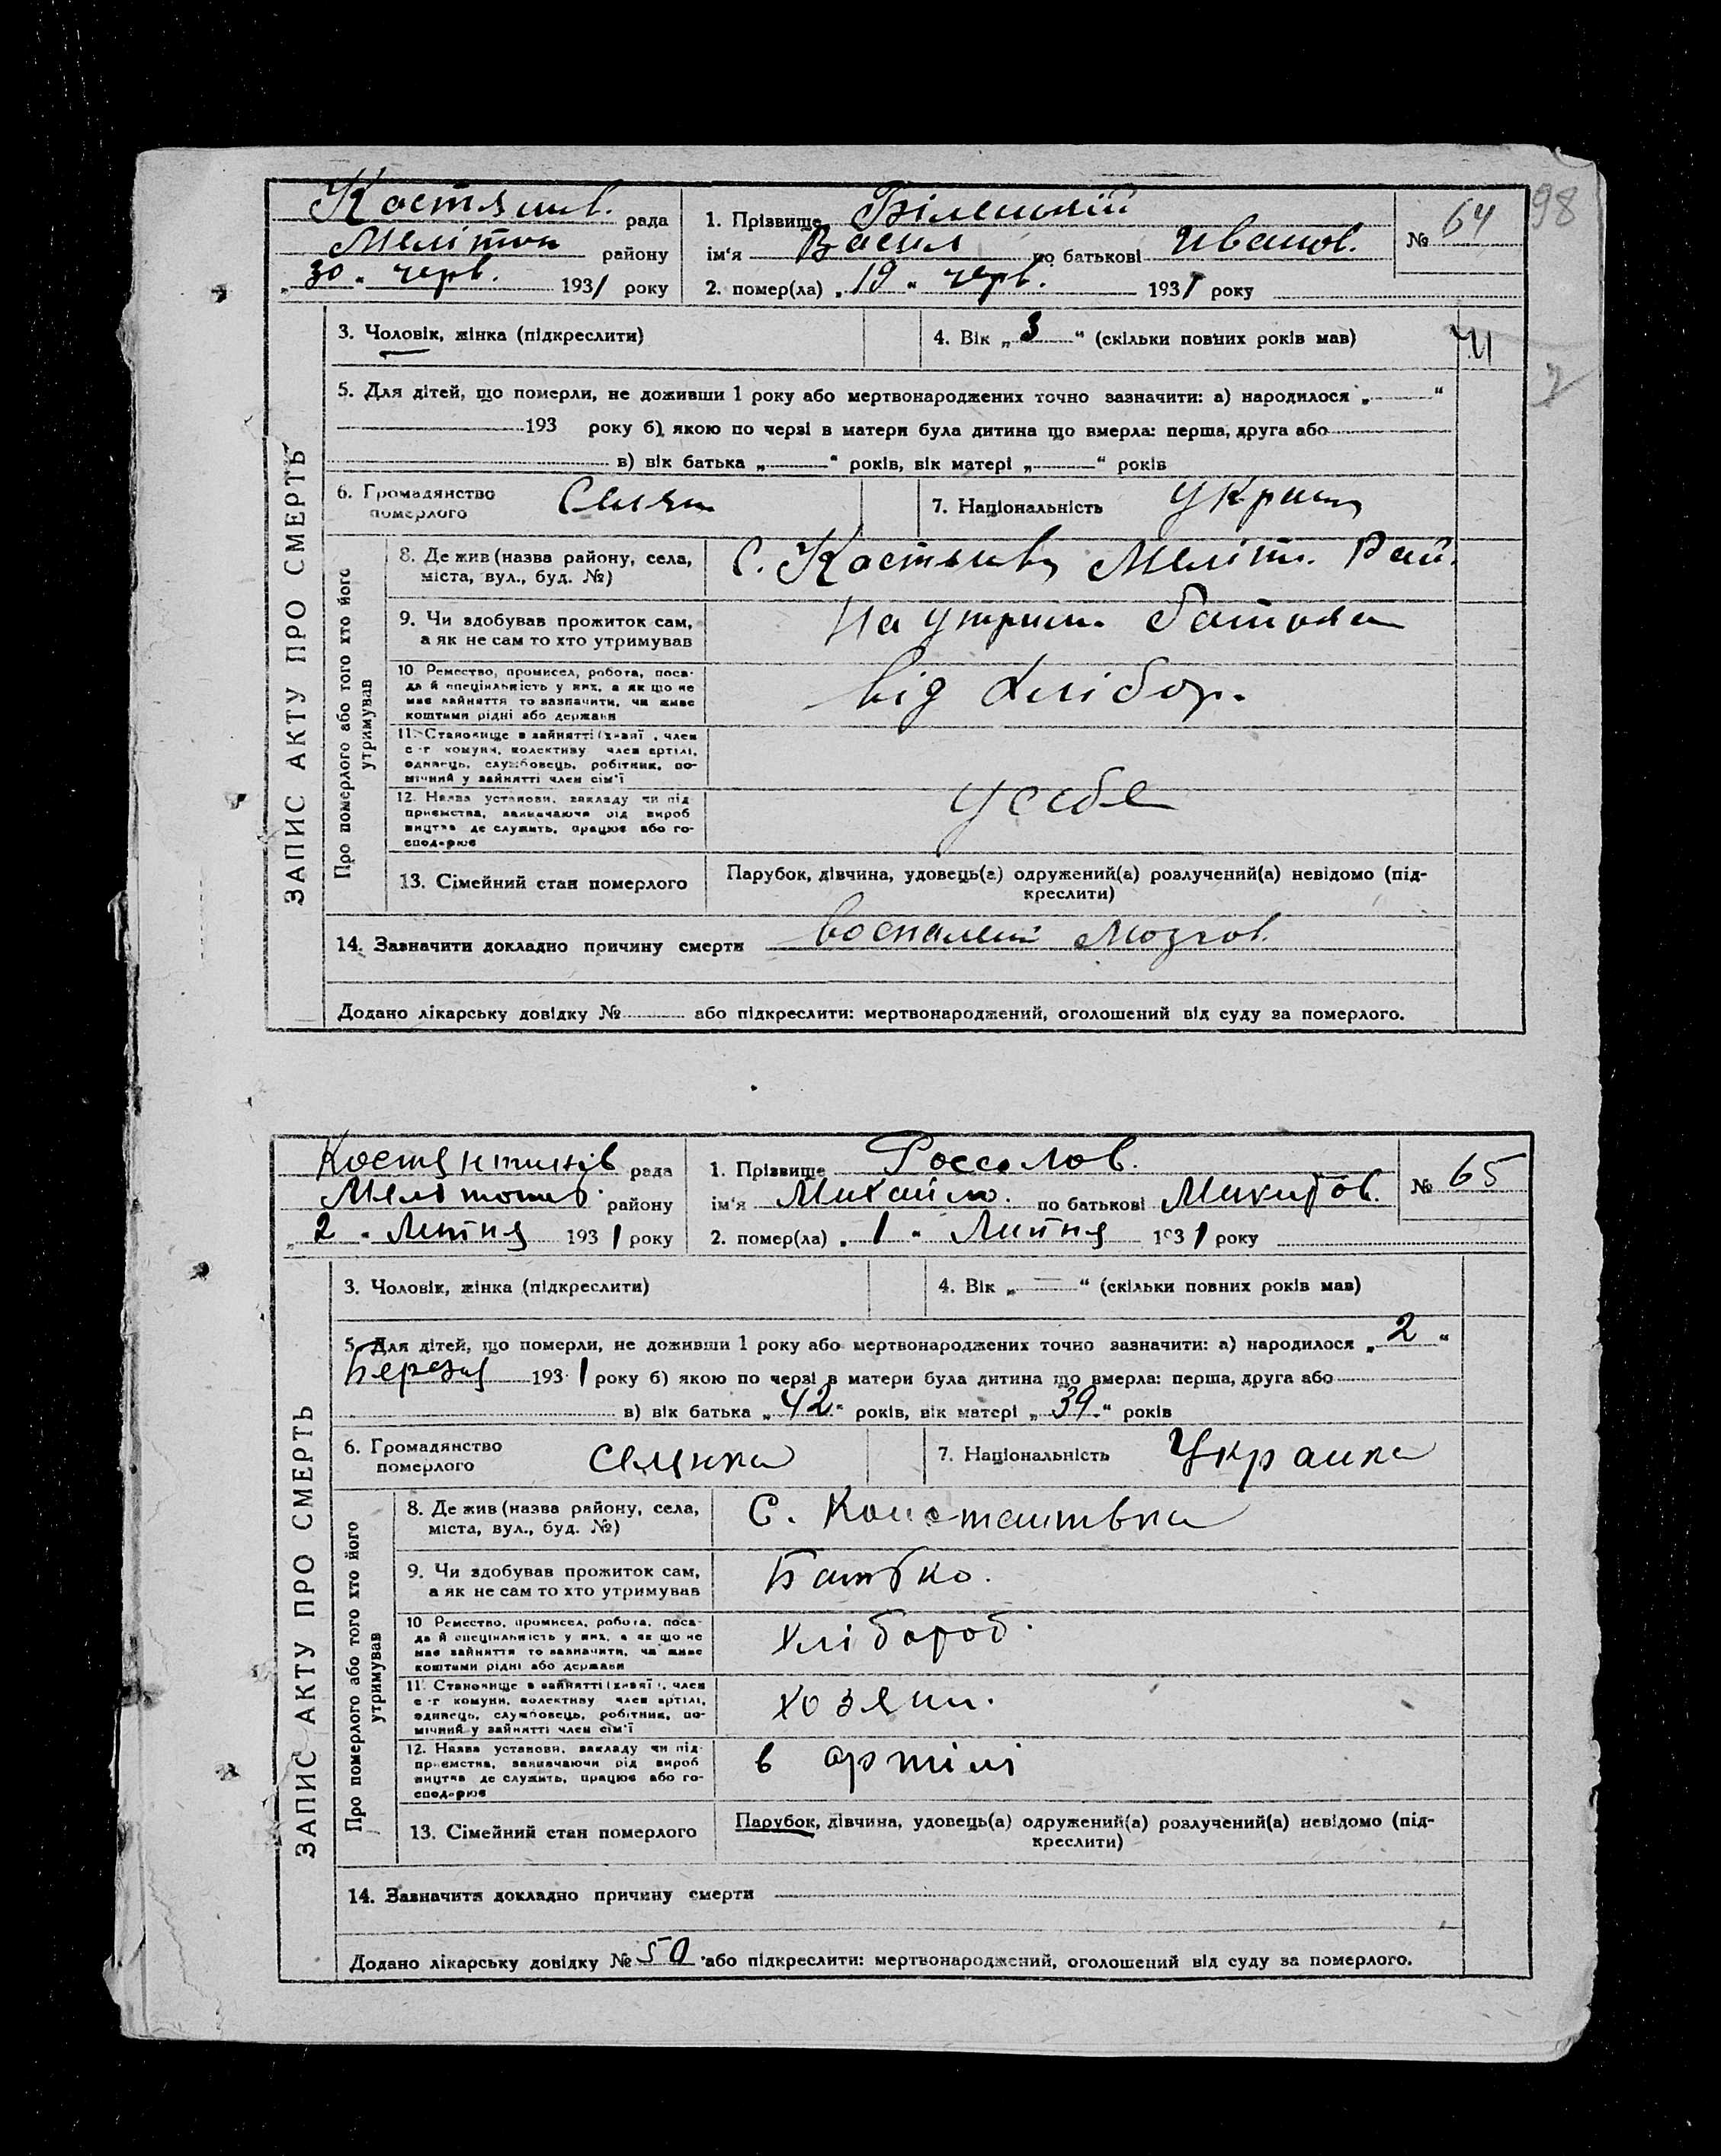 98
Костянтів. рада
Мелітоп району
„ 30 “ черв. 1931 року
1. Прізвище Білецький
ім'я Васил по батькові Иванов.
2. помер(ла) „ 19 “ черв. 1931 року
№ 64
ЗАПИС АКТУ ПРО СМЕРТЬ
3. Чоловік, жінка (підкреслити)
4. Вік „ 3 “ (скільки повних років мав)
5. Для дітей, що померли, не доживши 1 року або мертвонароджених точно зазначити: а) народилося „ “
193 року б) якою по черзі в матери була дитина що вмерла: перша, друга або
в) вік батька „ “ років, вік матері „ “ років
6. Громадянство
померлого
Селян
7. Національність Украин
Про померлого або того хто його
утримував
8. Де жив (назва району, села,
міста, вул., буд. №)
С. Костянтів Меліт. Рай.
9. Чи здобував прожиток сам,
а як не сам то хто утримував
На утрим. батька
10. Ремество, промисел, робота, поса-
да й спеціяльність у них, а як що не
має зайняття то зазначити, чи живе
коштами рідні або держави
від хлібор.
11. Становище в зайнятті (хазяї, член
с-г комуни, колективу член артілі,
одинець, службовець, робітник, по-
мічний у зайнятті член сім'ї
12. Назва установи, закладу чи під-
приємства, зазначаючи рід вироб
ництва де служить, працює або го-
сподарює
у себе
13. Сімейний стан померлого
Парубок, дівчина, удовець(а) одружений(а) розлучений(а) невідомо (під-
креслити)
14. Зазначити докладно причину смерти воспалені мозгов.
Додано лікарську довідку № або підкреслити: мертвонароджений, оголошений від суду за померлого.
Костянтинів рада
Мелітопив. району
„ 2 “ Липня 1931 року
1. Прізвище Россолов.
ім'я Михайло. по батькові Микитов.
2. помер(ла) „ 1 “ Липня 1931 року
№ 65
ЗАПИС АКТУ ПРО СМЕРТЬ
3. Чоловік, жінка (підкреслити)
4. Вік „ — “ (скільки повних років мав)
5. Для дітей, що померли, не доживши 1 року або мертвонароджених точно зазначити: а) народилося „ 2 “
Березня 1931 року б) якою по черзі в матери була дитина що вмерла: перша, друга або
в) вік батька „ 42 “ років, вік матері „ 39 “ років
6. Громадянство
померлого
7. Національність Украинс
Про померлого або того хто його
утримував
8. Де жив (назва району, села,
міста, вул., буд. №)
С. Константивка
9. Чи здобував прожиток сам,
а як не сам то хто утримував
Батько.
10 Ремество, промисел, робота, поса-
да й спеціяльність у них, а як що не
має зайняття то зазначити, чи живе
коштами рідні або держави
хлібороб.
11. Становище в зайнятті (хазяї, член
с-г комуни, колективу член артілі,
одинець, службовець, робітник, по-
мічний у зайнятті член сім'ї
хозяин.
12. Назва установи, закладу чи під-
приємства, зазначаючи рід вироб
ництва де служить, працює або го-
сподарює
в артілі
13. Сімейний стан померлого
Парубок, дівчина, удовець(а) одружений(а) розлучений(а) невідомо (під-
креслити)
14. Зазначити докладно причину смерти
Додано лікарську довідку № 50 або підкреслити: мертвонароджений, оголошений від суду за померлого.